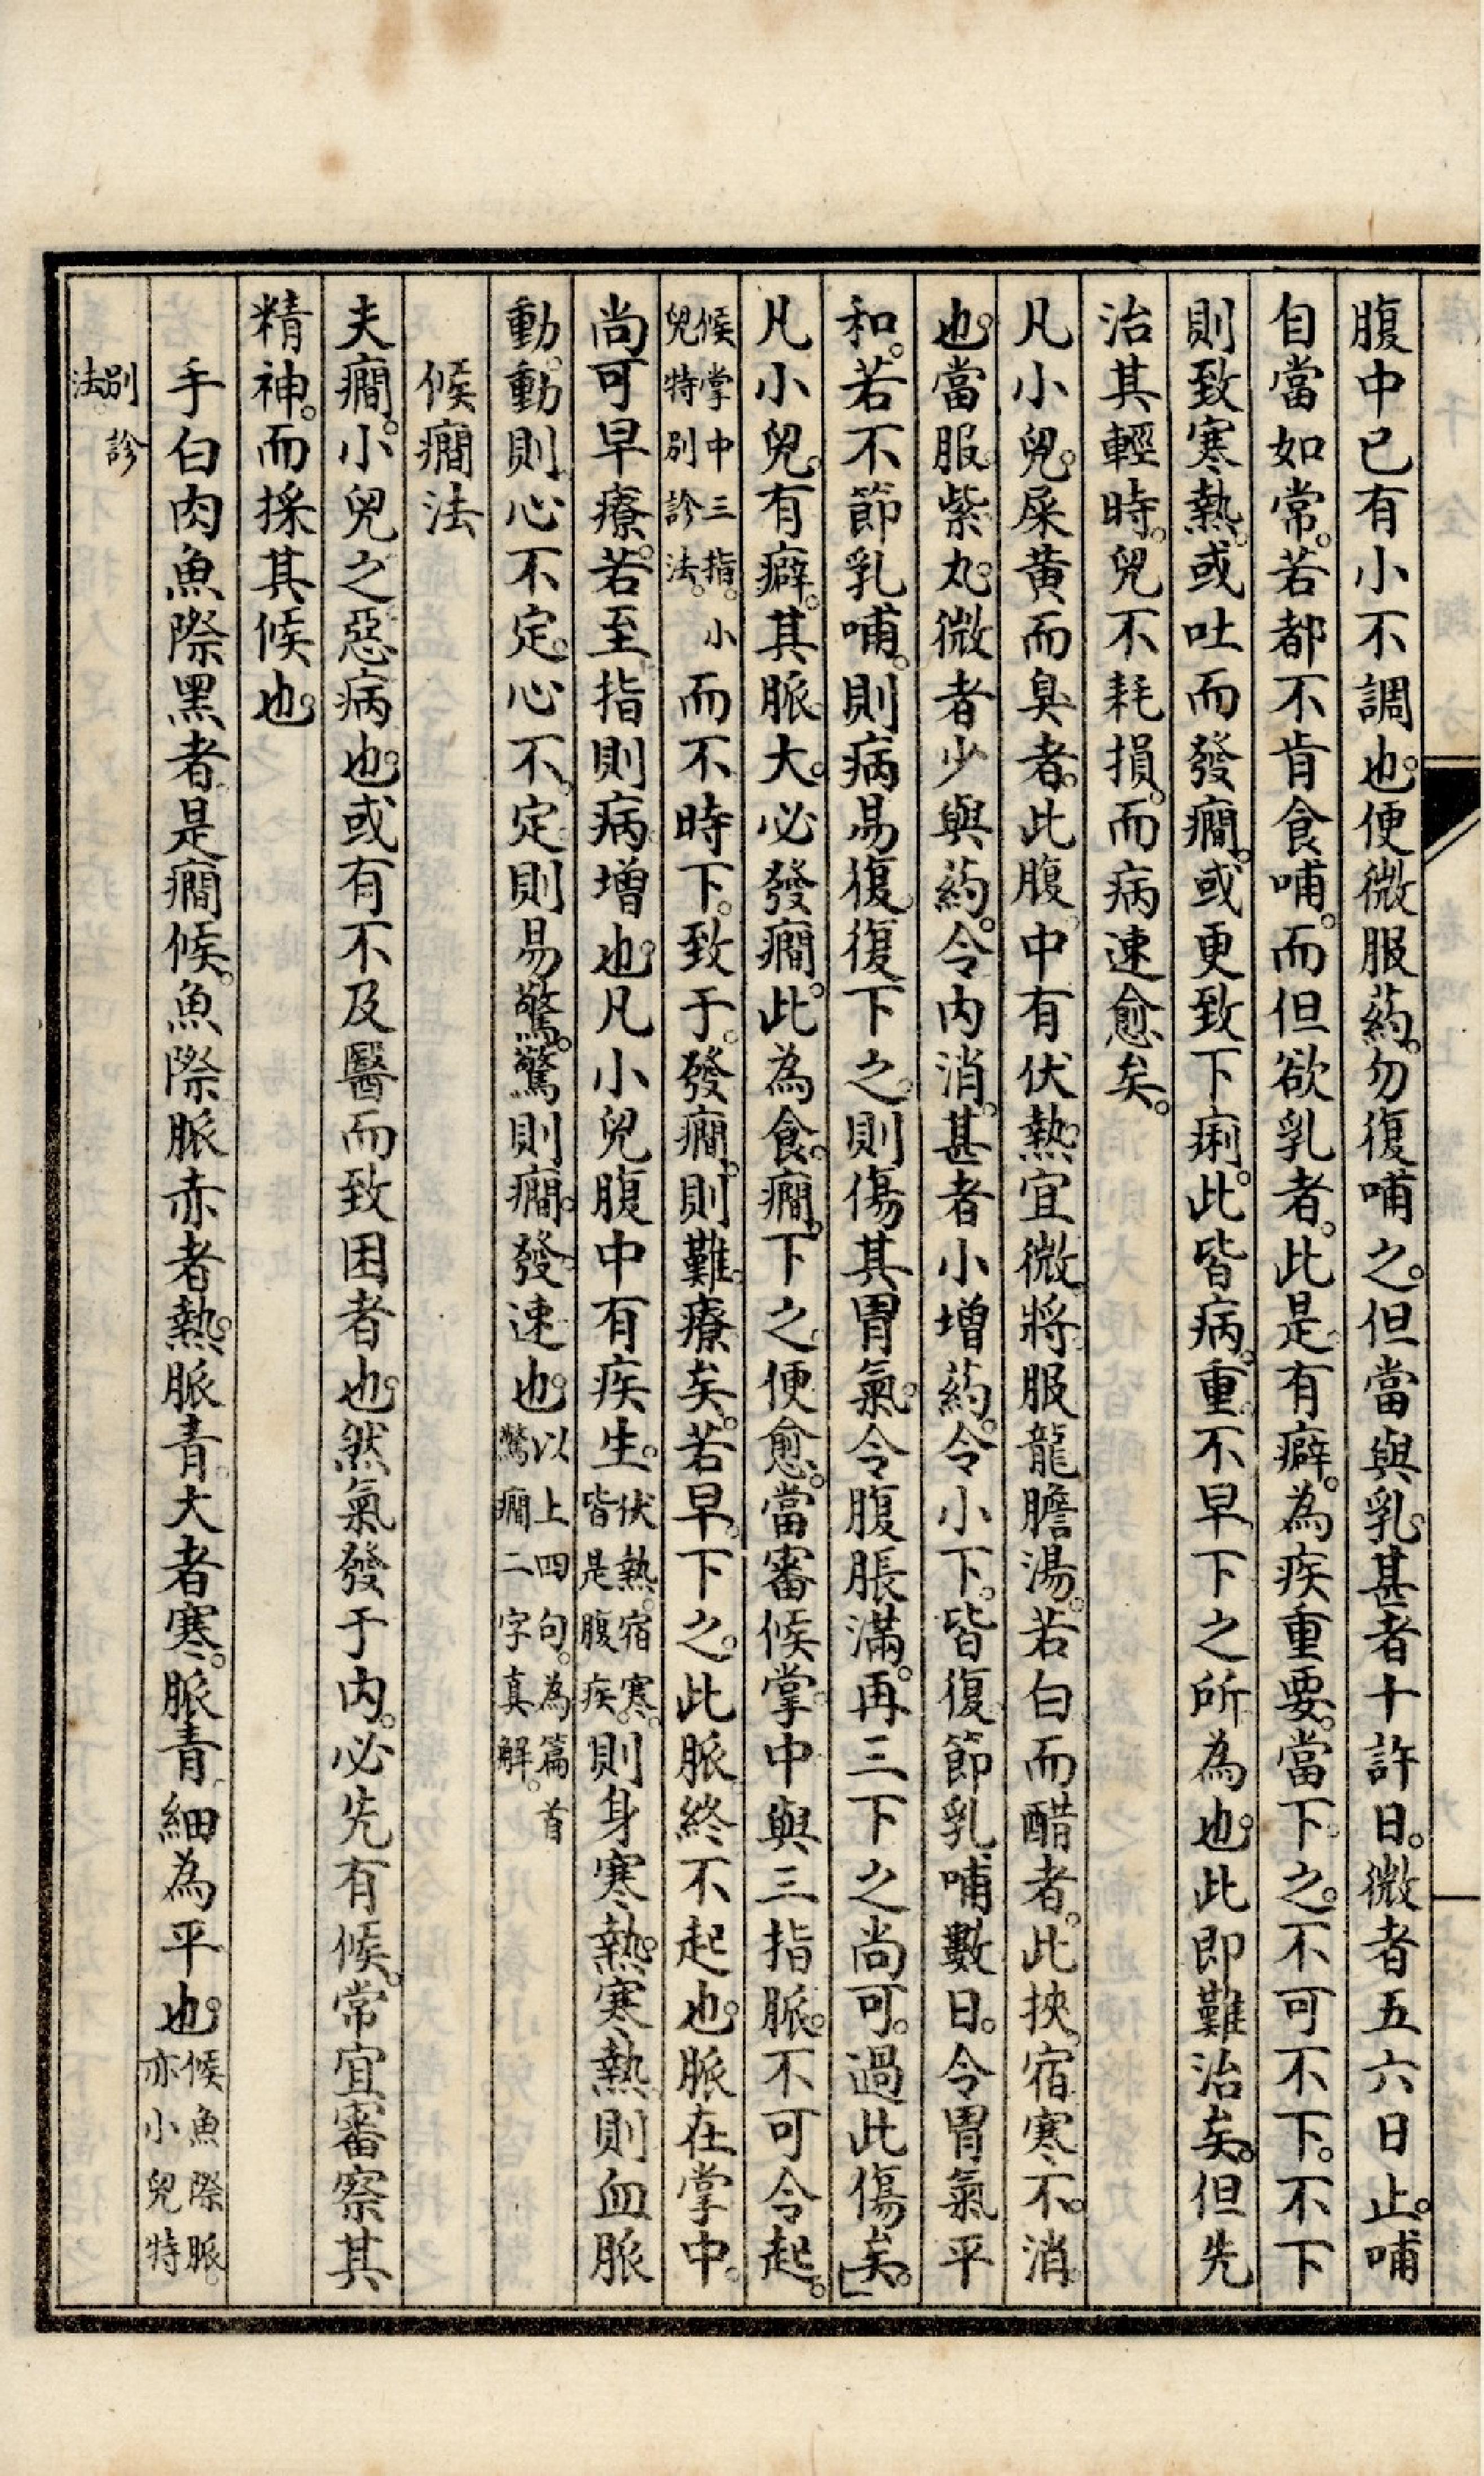 腹中已有小不調也。便微服葯。勿復哺之。但當與乳。甚者十許日。微者五六日止。哺
自當如常。若都不肯食哺。而但欲乳者。此是有癖。為疾重要。當下之。不可不下。不下
則致寒熱。或吐而發癎。或更致下痢。此皆病重。不早下之所為也。此即難治矣。但先
治其輕時。兒不耗損。而病速愈矣。
凡小兒。屎黃而臭者。此腹中有伏熱。宜微將服龍膽湯。若白而醋者。此挾宿寒不消。
也。當服紫丸。微者少與葯。令內消。甚者小增葯。令小下。皆復節乳哺數日。令胃氣平
和。若不節乳哺。則病易復。復下之。則傷其胃氣。令腹脹滿。再三下之尚可。過此傷矣。
凡小兒。有癖。其脈大。必發癎。此為食癎。下之便愈。當審候掌中與三指脈。不可令起。
候掌中三指。小兒特別診法。而不時下。致于發癎。則難療矣。若早下之。此脈終不起也。脈在掌中。
尚可早療。若至指則病增也。凡小兒腹中有疾生。伏熱。宿寒。皆是腹疾。則身寒熱。寒熱則血脈
動。動則心不定。心不定則易驚。驚則癎發速也。以上四句。為篇首驚癎二字真解。
候癎法
夫癎。小兒之惡病也。或有不及醫而致困者也。然氣發于內。必先有候。常宜審察其
精神。而採其候也。
手白肉魚際黑者。是癎候。魚際脈赤者熱。脈青大者寒。脈青細為平也。候魚際脈。亦小兒特
別診法。